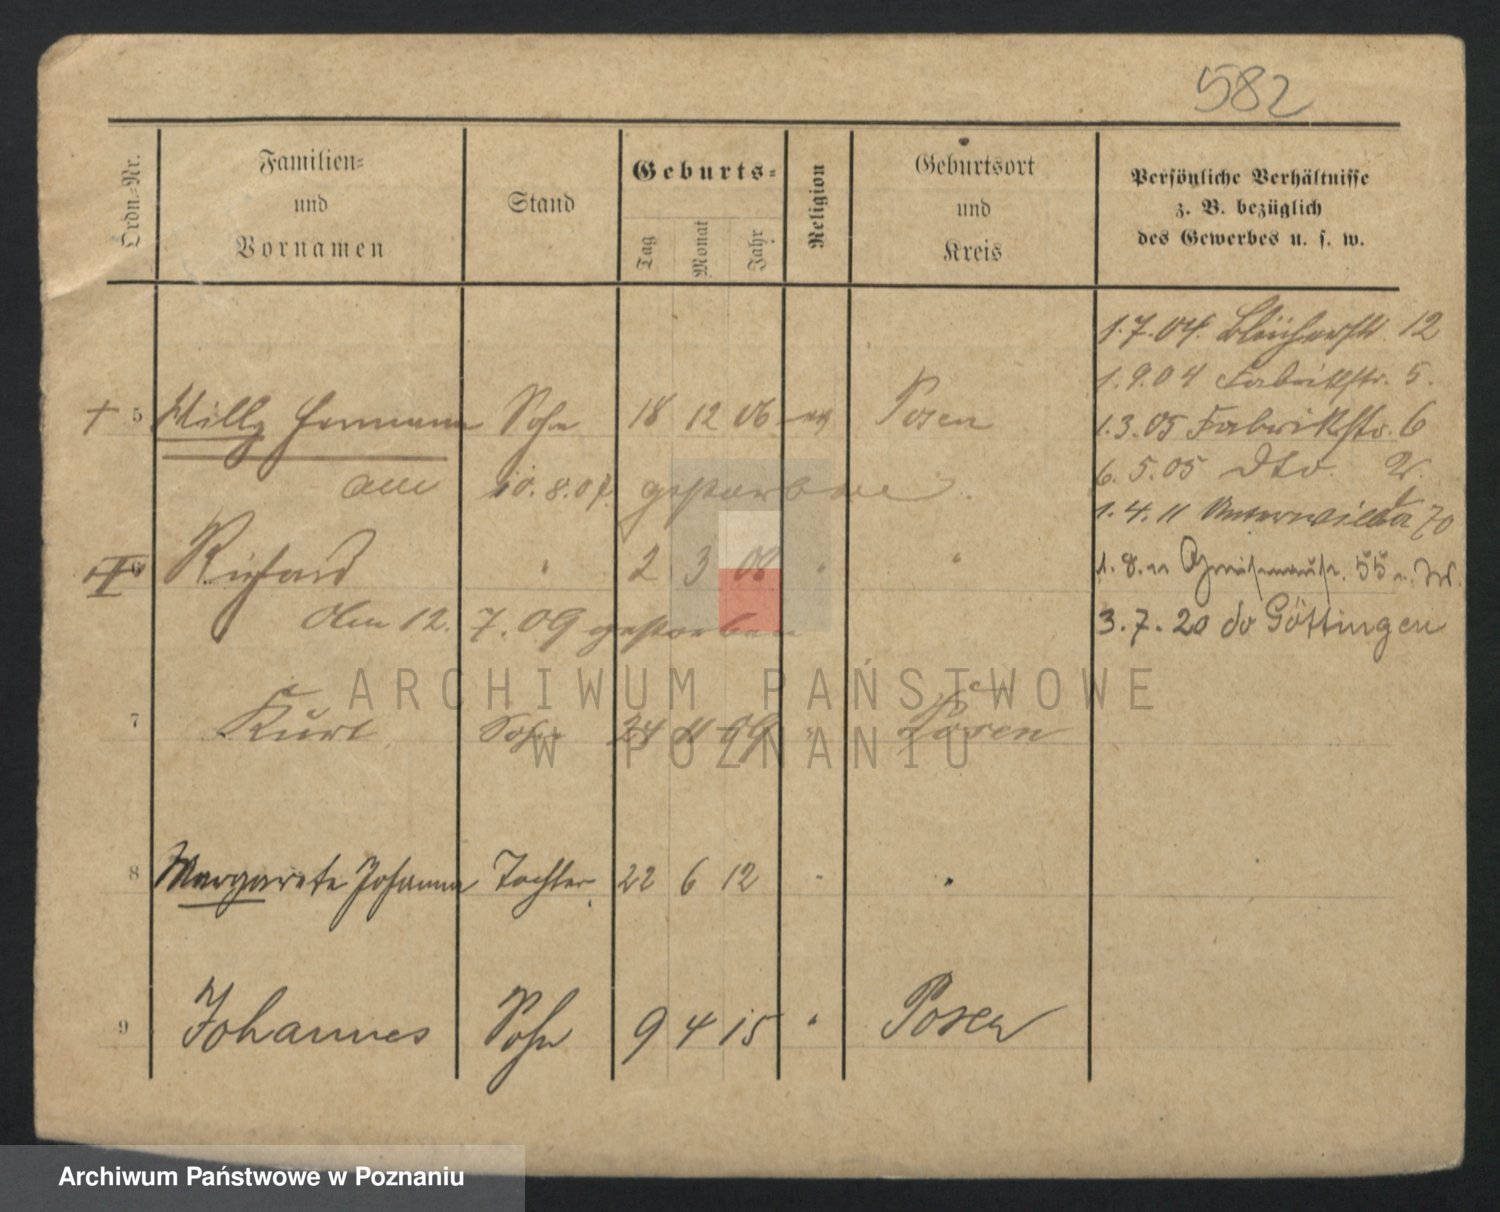 582
Ordn.-Nr.
Familien-
und
Vornamen
Stand
Geburts-
Tag
Monat
Jahr
Religion
Geburtsort
und
Kreis
Persönliche Verhältnisse
z. B. bezüglich
des Gewerbes u. s. w.
1.7.04. Blücherstr. 12
1.9.04 Fabrikstr. 5.
1.3.05 Fabrikstr. 6
6.5.05 dto.
1.4.11 Unterwilda 70
1.8. Gneisenaustr. 55
3.7.20 do Göttingen
+ 5 Willy Hermann Sohn 18 12 06 ev Posen
am 10.8.07 gestorben.
6 Richard " 2 3 08 " "
Am 12.7.09 gestorben
7 Kurt Sohn 24 11 09 " Posen
8 Margarete Johanna Tochter 22 6 12 " "
9 Johannes Sohn 9 4 15 " Posen
ARCHIWUM PAŃSTWOWE
W POZNANIU
Archiwum Państwowe w Poznaniu